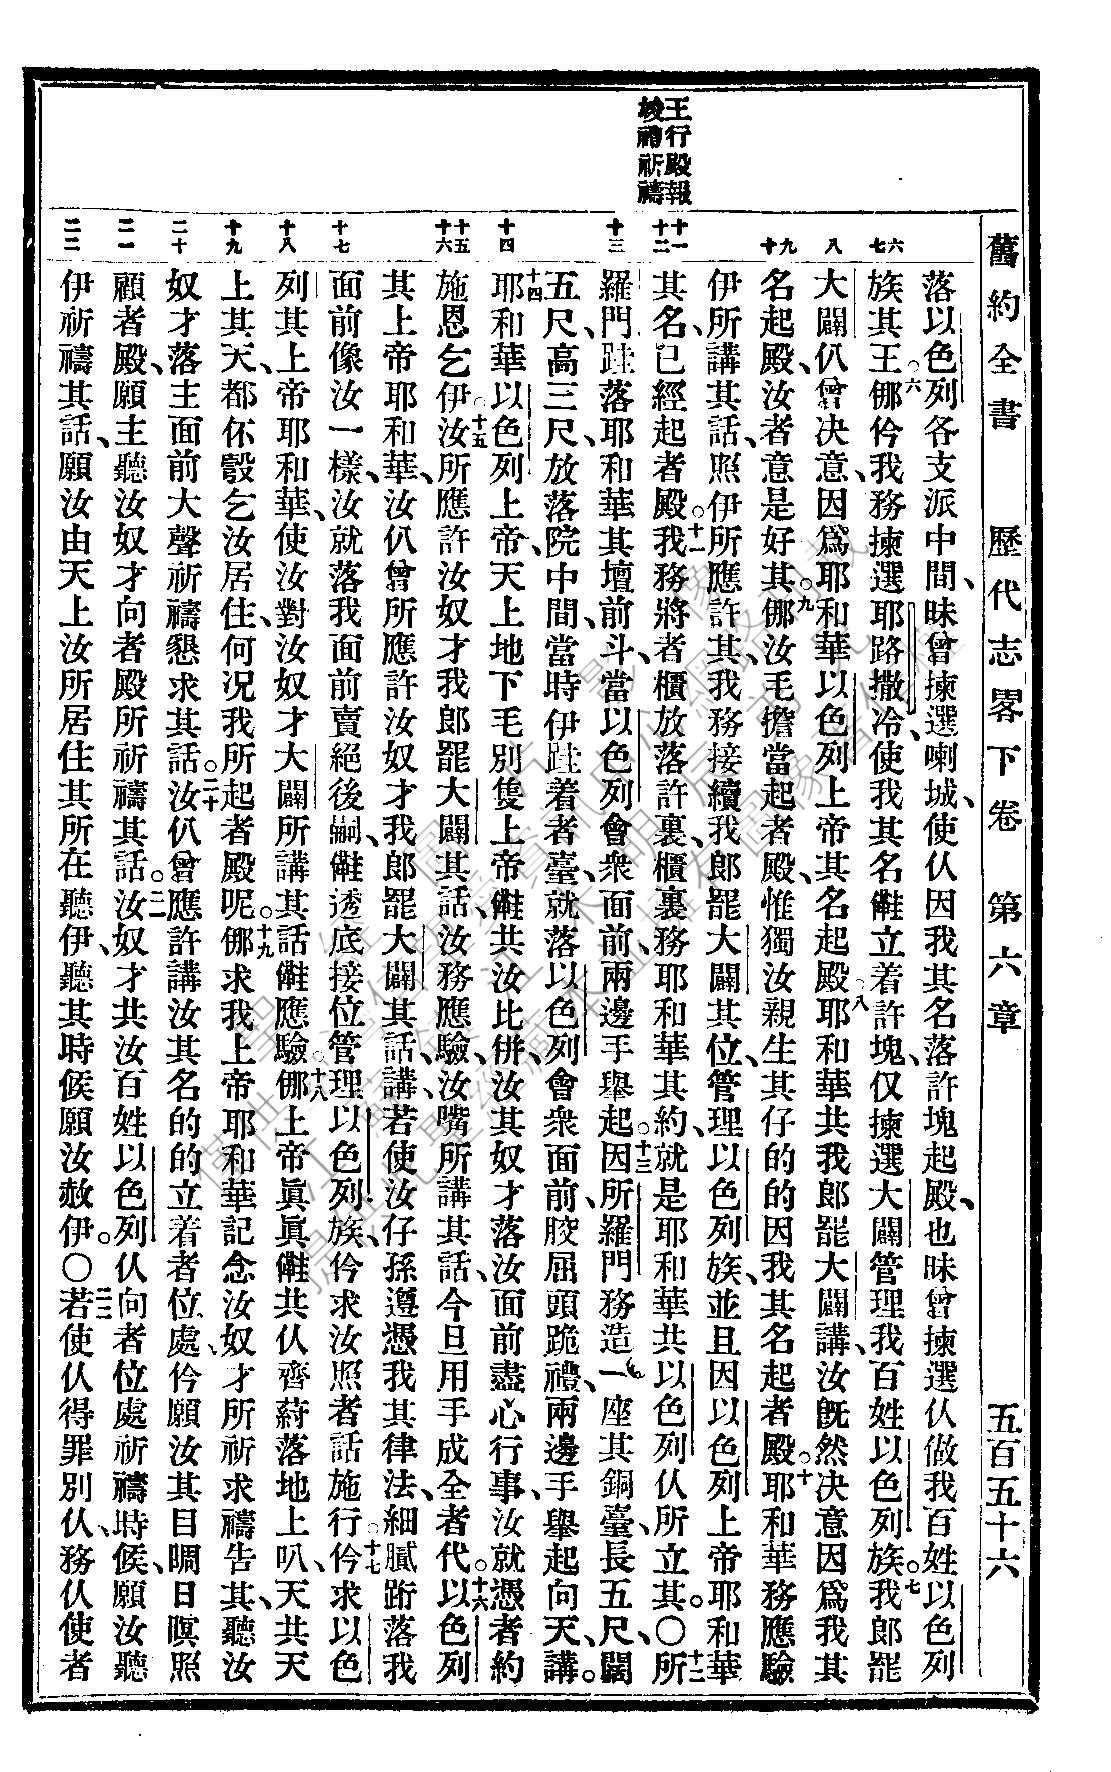 舊約全書 歷代志畧下卷 第六章 五百五十六
王行殿報
竣禮祈禱
六 七 八 九 十 十一 十二 十三 十四 十五 十六 十七 十八 十九 二十 二一 二二
落以色列各支派中間、昧曾揀選喇城、使仈因我其名落許塊起殿、也昧曾揀選仈做我百姓以色列
族其王。六㑚仱我務揀選耶路撒冷、使我其名𣍐立着許塊、仅揀選大闢管理我百姓以色列族。七我郎罷
大闢仈曾決意、因爲耶和華以色列上帝其名起殿。八耶和華共我郎罷大闢講、汝旣然決意因爲我其
名起殿、汝者意是好其。九㑚汝毛擔當起者殿、惟獨汝親生其仔的的因我其名起者殿。十耶和華務應驗
伊所講其話、照伊所應許其、我務接續我郎罷大闢其位、管理以色列族、並且因以色列上帝耶和華
其名、已經起者殿。十一我務將者櫃放落許裏、櫃裏務耶和華其約、就是耶和華共以色列仈所立其。〇十二所
羅門跬落耶和華其壇前、斗當以色列會衆面前、兩邊手舉起。十三因所羅門務造一座其銅臺、長五尺、闊
五尺、高三尺、放落院中間、當時伊跬着者臺、就落以色列會衆面前、骹屈頭跪禮、兩邊手舉起向天講。
十四耶和華以色列上帝、天上地下毛別隻上帝𣍐共汝比併、汝其奴才落汝面前盡心行事、汝就憑者約
施恩乞伊。十五汝所應許汝奴才我郎罷大闢其話、汝務應驗、汝嘴所講其話、今旦用手成全者代。十六以色列
其上帝耶和華、汝仈曾所應許汝奴才我郎罷大闢其話、講若使汝仔孫遵憑我其律法、細膩跡落我
面前像汝一樣、汝就落我面前賣絕後嗣、𣍐透底接位管理以色列族、仱求汝照者話施行。十七仱求以色
列其上帝耶和華、使汝對汝奴才大闢所講其話𣍐應驗。十八㑚上帝眞眞𣍐共仈齊蒞落地上叭、天共天
上其天、都伓彀乞汝居住、何況我所起者殿呢。十九㑚求我上帝耶和華記念汝奴才所祈求禱告其、聽汝
奴才落主面前大聲祈禱懇求其話。二十汝仈曾應許講、汝其名的的立着者位處、仱願汝其目睭日暝照
顧者殿、願主聽汝奴才向者殿所祈禱其話。二一汝奴才共汝百姓以色列仈、向者位處祈禱時候、願汝聽
伊祈禱其話、願汝由天上汝所居住其所在聽伊、聽其時候、願汝赦伊。〇二二若使仈得罪別仈、務仈使者